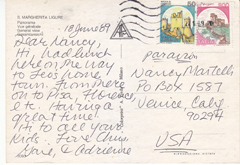 S. MARGHERITA LIGURE
Panorama
Vue générale
General view
18 June 89
Dear Nancy,
Hi. Had lunch
here on the way
to Leo's home
town. From there
on to Pisa, Florence
etc. Having a
great time
Hi to all your
kids. Love Chris
& Adrienne
par avion
Nancy Martells
PO Box 1587
Venice, Calif
90294
USA